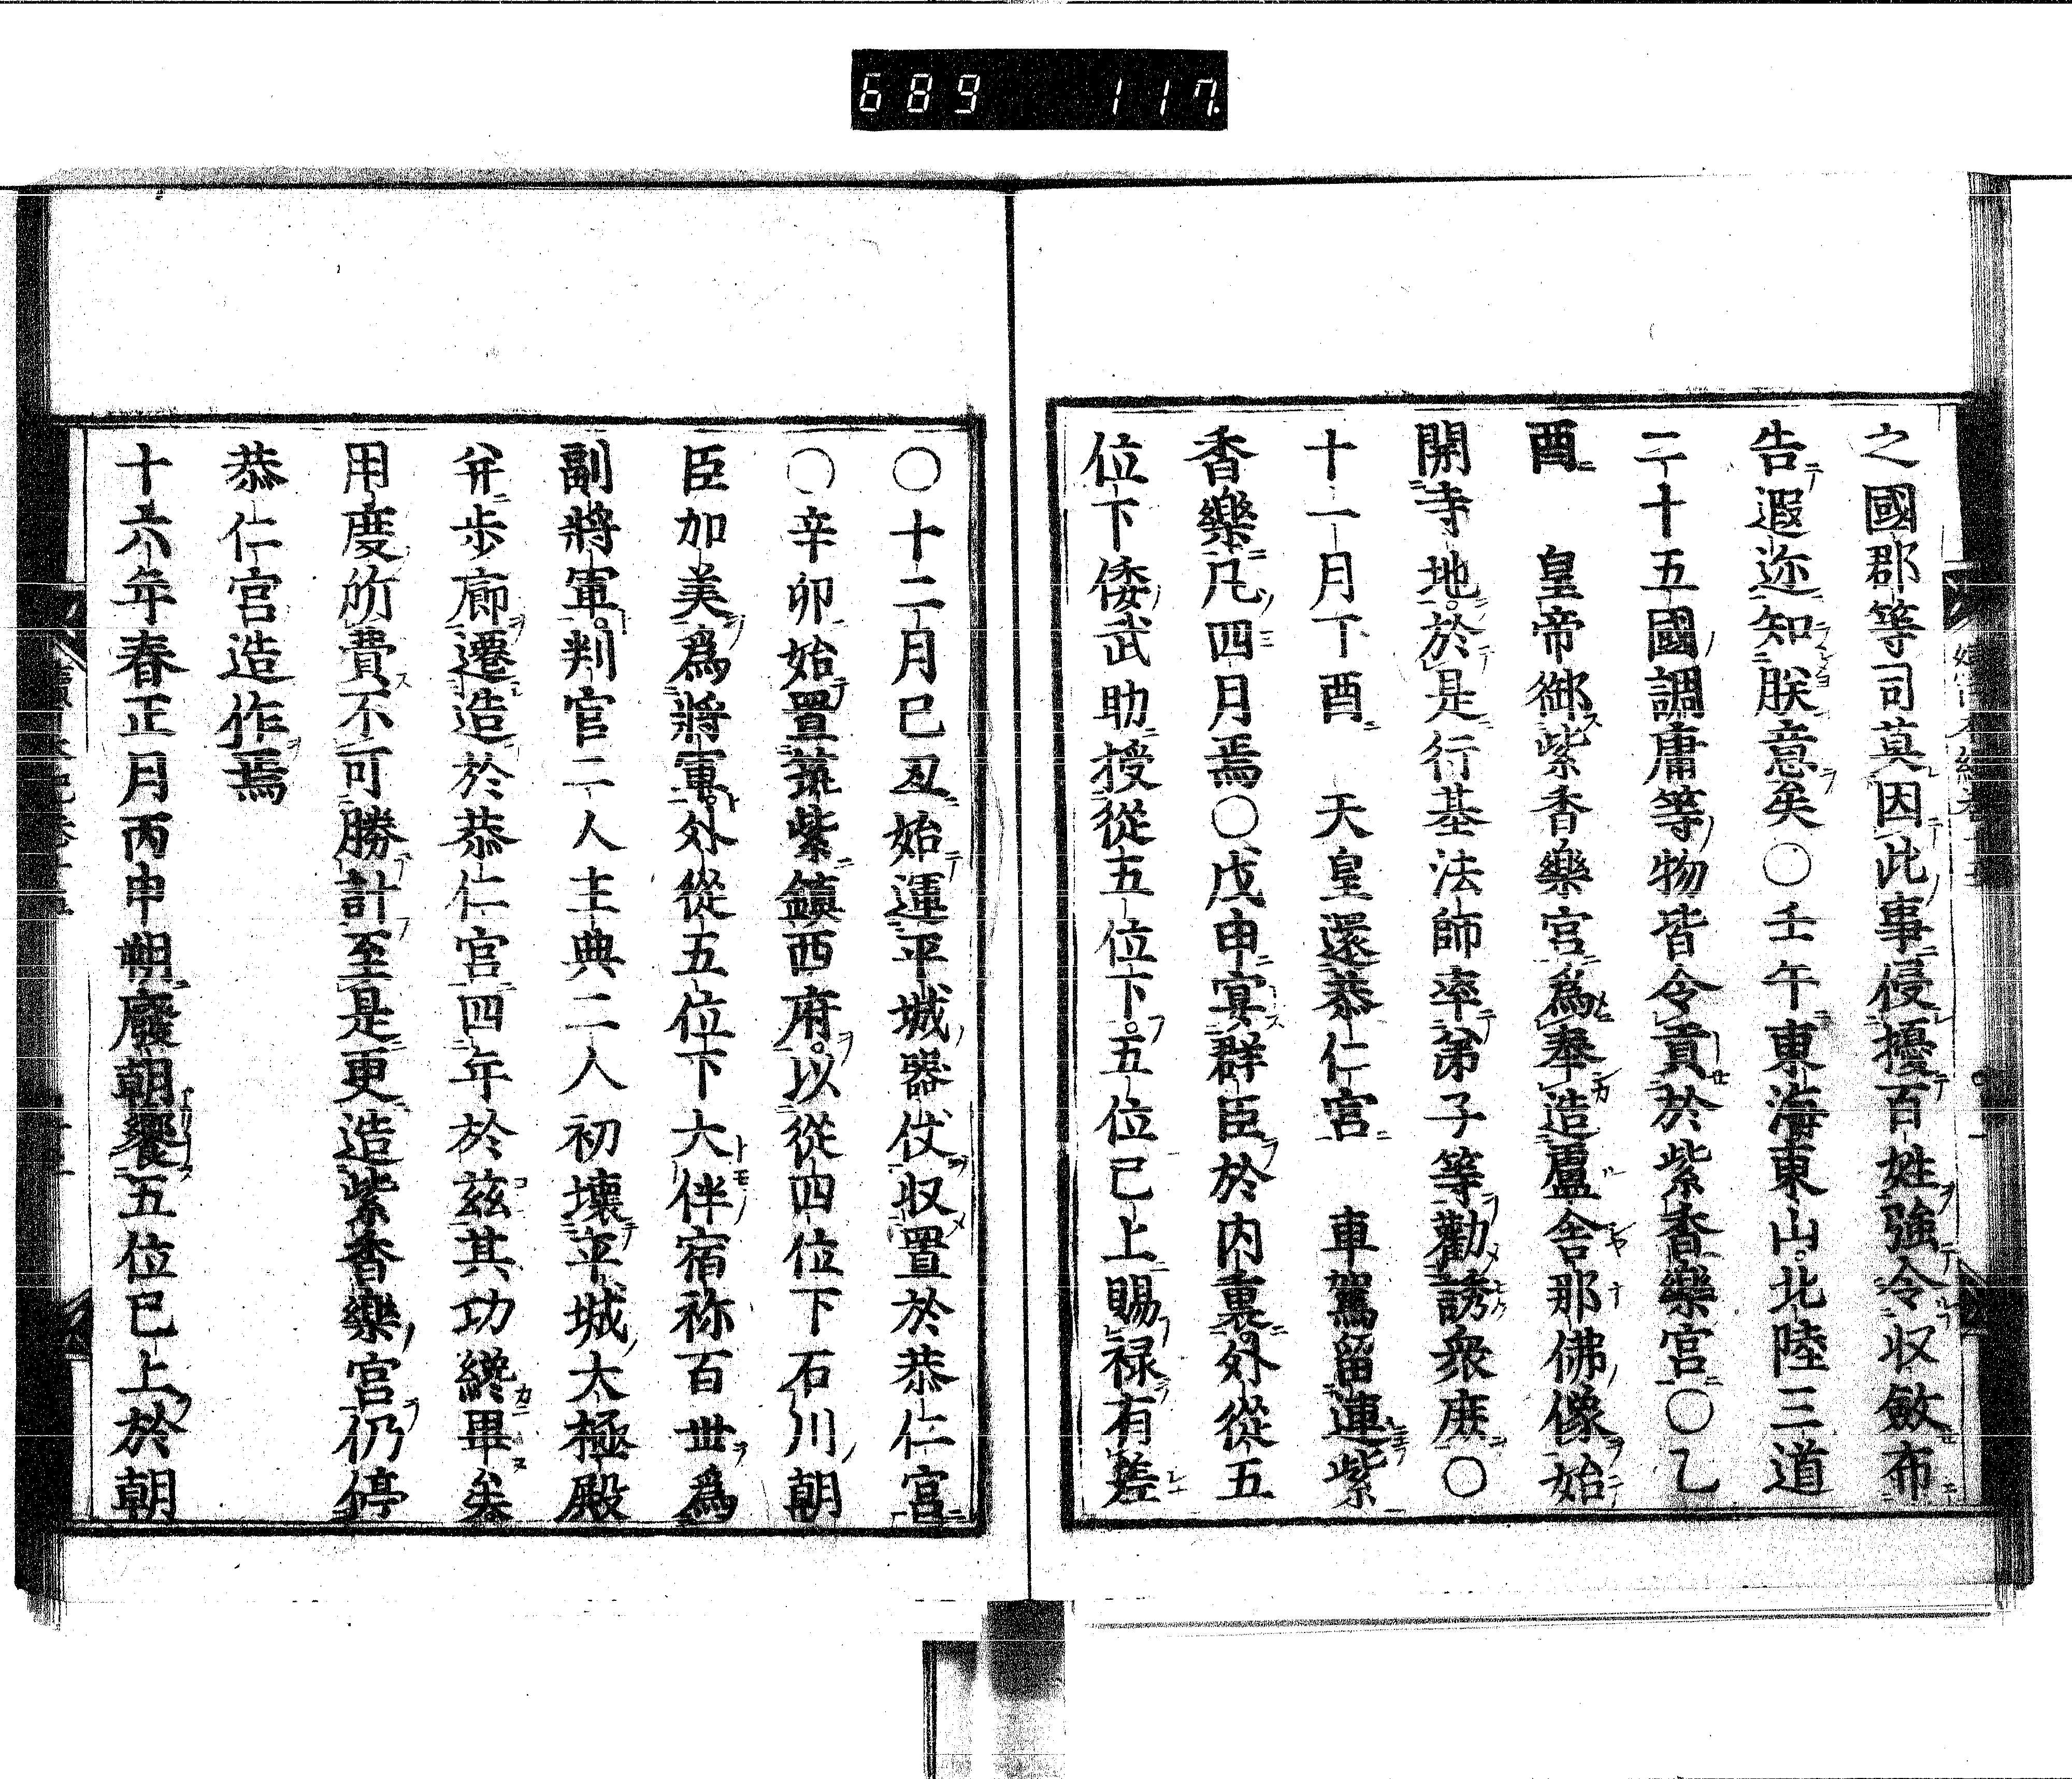 689 117
之國郡等司莫因此事侵擾百姓強令収斂布
告遐迩知朕意矣〇壬午東海東山北陸三道
二十五國調庸等物皆令貢於紫香樂宮〇乙
酉　皇帝御紫香樂宮為奉造盧舎那佛像始
開寺地於是行基法師率弟子等勸誘衆庶〇
十一月丁酉　天皇還恭仁宮　車駕留連紫
香樂凡四月焉〇戊申宴群臣於内裏外從五
位下倭武助授從五位下五位已上賜禄有差
〇十二月己丑始運平城器仗収置於恭仁宮
〇辛卯始置筑紫鎮西府以從四位下石川朝
臣加美爲將軍外從五位下大伴宿祢百丗爲
副將軍判官二人主典二人初壊平城大極殿
并歩廊遷造於恭仁宮四年於茲其功纔畢矣
用度所費不可勝計至是更造紫香樂宮仍停
恭仁宮造作焉
十六年春正月丙申朔廢朝饗五位已上於朝